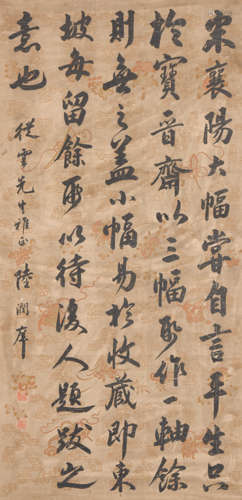 米襄陽大幅嘗自言平生只
於寶晉齋以三幅取作一軸餘
則無之蓋小幅易於收藏即東
坡每留餘番以待後人題跋之
意也
從雲先生雅正
陸潤庠